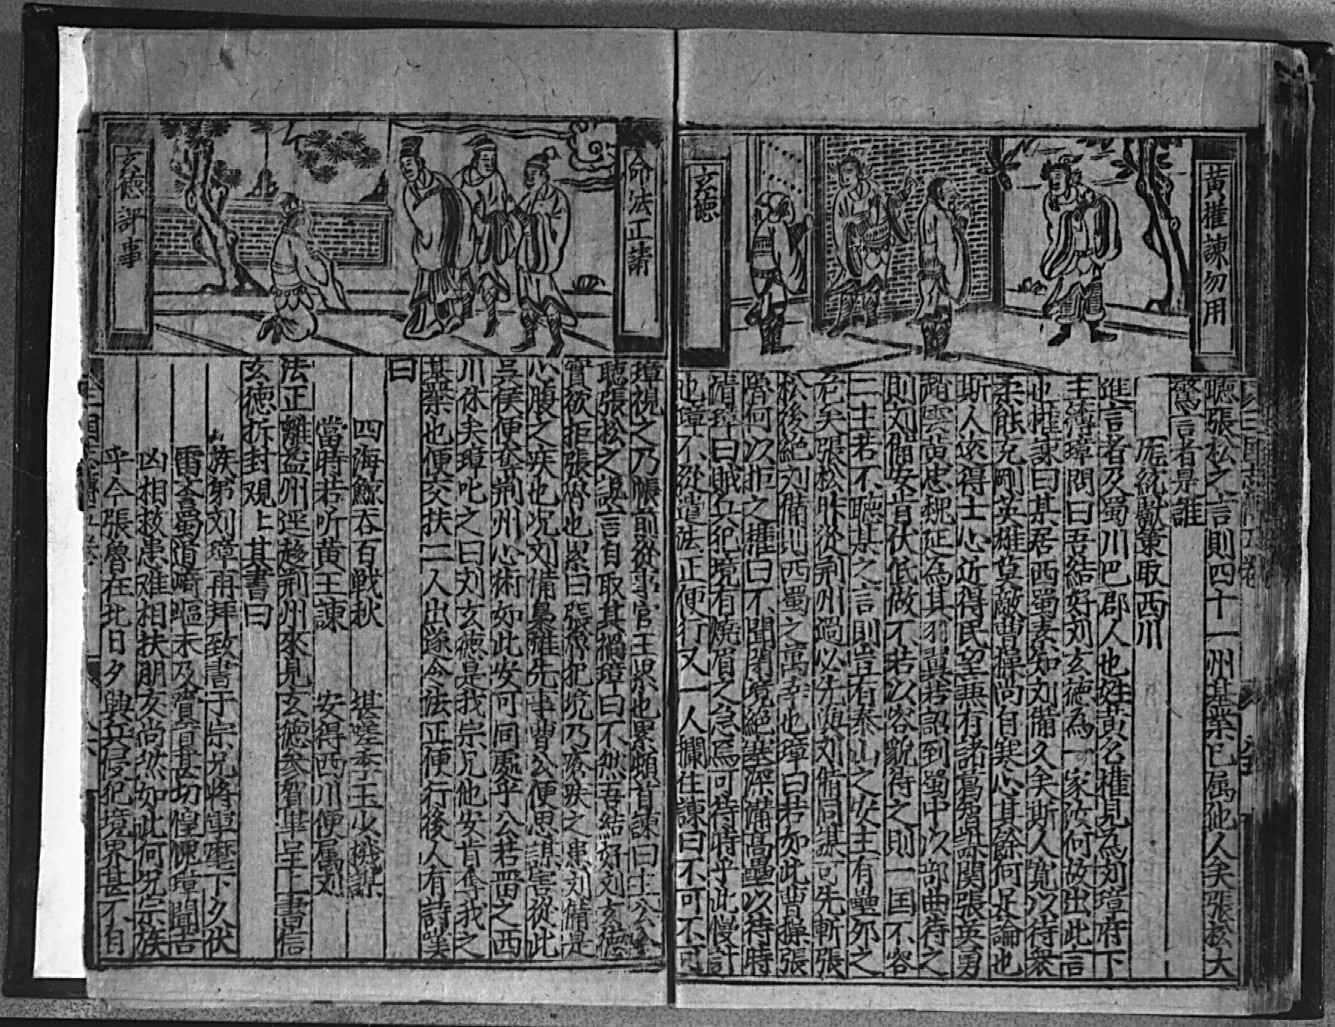 黃權諫勿用
玄德
聽張松之言則四十一州基業已属他人矣張松大
驚言者是誰
龐統獻策取西川
進言者乃蜀川巴郡人也姓黃名權見為刘璋府下
主簿璋問曰吾結好刘玄德為一家汝何故出此言
也權諫曰某居西蜀素知刘備久矣斯人寬以待衆
柔能克剛英雄莫敵曹操尚自寒心其餘何足論也
斯人遠得士心近得民望無有諸葛智謀関張英勇
趙雲黄忠魏延為其羽翼若詔到蜀中以部曲待之
則刘備安肯伏低做不若以客貌待之則一囯不容
二主若不聽某之言則豈有泰山之安主有壘夘之
危矣張松昨從荆州過必先與刘備同謀可先斬張
松後絕刘備則西蜀之萬幸也璋曰若如此曹操張
魯何以拒之權曰不聞閉境絕塞深溝高壘以待時
清璋曰賊兵犯境有燒眉之急焉可待時乎此慢計
也璋不從遣法正便行又一人攔住諫曰不可不可
命法正請
玄德評事
璋視之乃帳前從事官王累也累頓首諫曰主公今
聽張松之謀言自取其禍璋曰不然吾結好刘玄德
實欲拒張魯也累曰張魯犯境乃瘡疥之患刘備是
心腹之疾也况刘備梟雄先事曹公便思謀害從此
吳侯便奪荆州心術如此安可同處乎公若畱之西
川休矣璋叱之曰刘玄德是我宗兄他安肯奪我之
基業也便交扶二人出遂令法正便行後人有詩嘆
曰
四海鯨吞百戰秋 堪嗟季玉少機謀
當時若听黄王諫 安得西川便属刘
法正離益州逕趍荆州來見玄德参賀畢呈上書信
玄德拆封观上其書曰
族弟刘璋再拜致書于宗兄將軍麾下久伏
雷令蜀道﨑嶇未及賫貢甚切惶愧璋聞吉
凶相救患难相扶朋友尚然如此何况宗族
乎今張魯在北日夕興兵侵犯境界甚不自